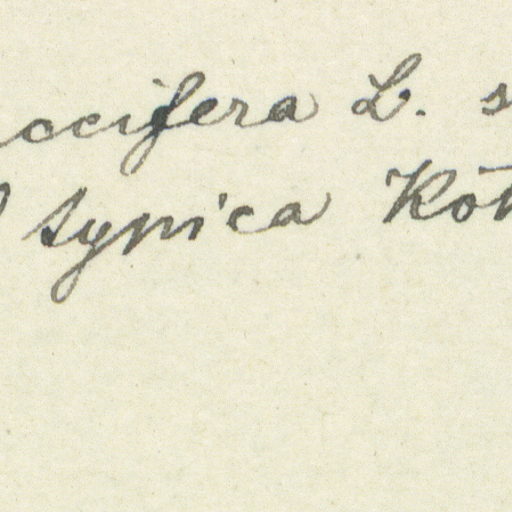 ccifera L. s
typica Köh